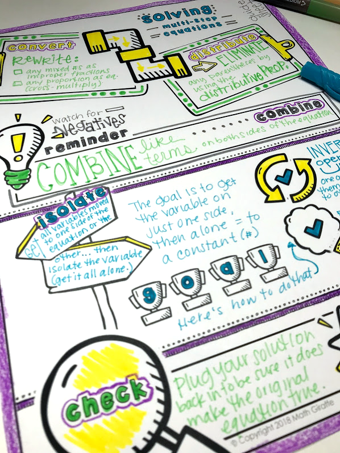 solving
multi-step
equations
convert
Rewrite:
any mixed #s as
improper fractions
any proportion as eq.
(cross-multiply)
distribute
ELIMINATE
any parentheses by
using the
distributive Prop.
watch for
Negatives
reminder
combine
COMBINE like
terms on both sides of the equation
isolate
Get all variables moved
to one side of the
equation or the
other... then
isolate the variable
(get it all alone.)
The goal is to get
the variable on
just one side,
then alone = to
a constant (#)
goal
Here's how to do that
check
Plug your solution
back in to be sure it does
make the original
equation true.
© Copyright 2018 Math Giraffe